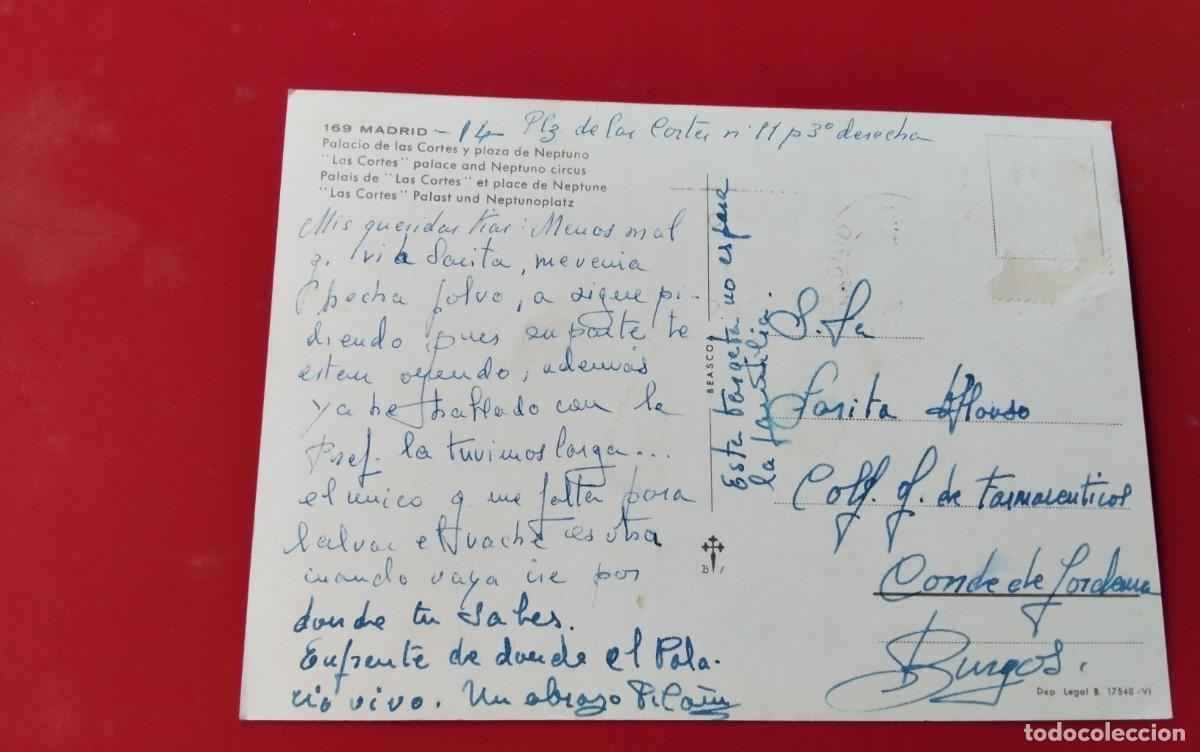 169 MADRID - 14 Plz de las Cortes nº 11 p 3º derecha
Palacio de las Cortes y plaza de Neptuno
"Las Cortes" palace and Neptuno circus
Palais de "Las Cortes" et place de Neptune
"Las Cortes" Palast und Neptunoplatz
Mis queridas tias: Menos mal
q. vi a Sarita, me venia
hecha polvo, a sigue pi-
diendo pues en parte te
estan oyendo, además
ya he hablado con la
Pref. la tuvimos larga...
el unico q me falta para
salvar el bache es
cuando vaya ire por
donde tu sabes.
Enfrente de donde el Pala-
cio vivo. Un abrazo
Esta targeta no es para
la familia.
BEASCOA
B
S. Sta
Sarita Alfonso
Col. of. de Farmaceuticos
Conde de Jordana
Burgos.
Dep. Legal B. 17548-VI
todocoleccion